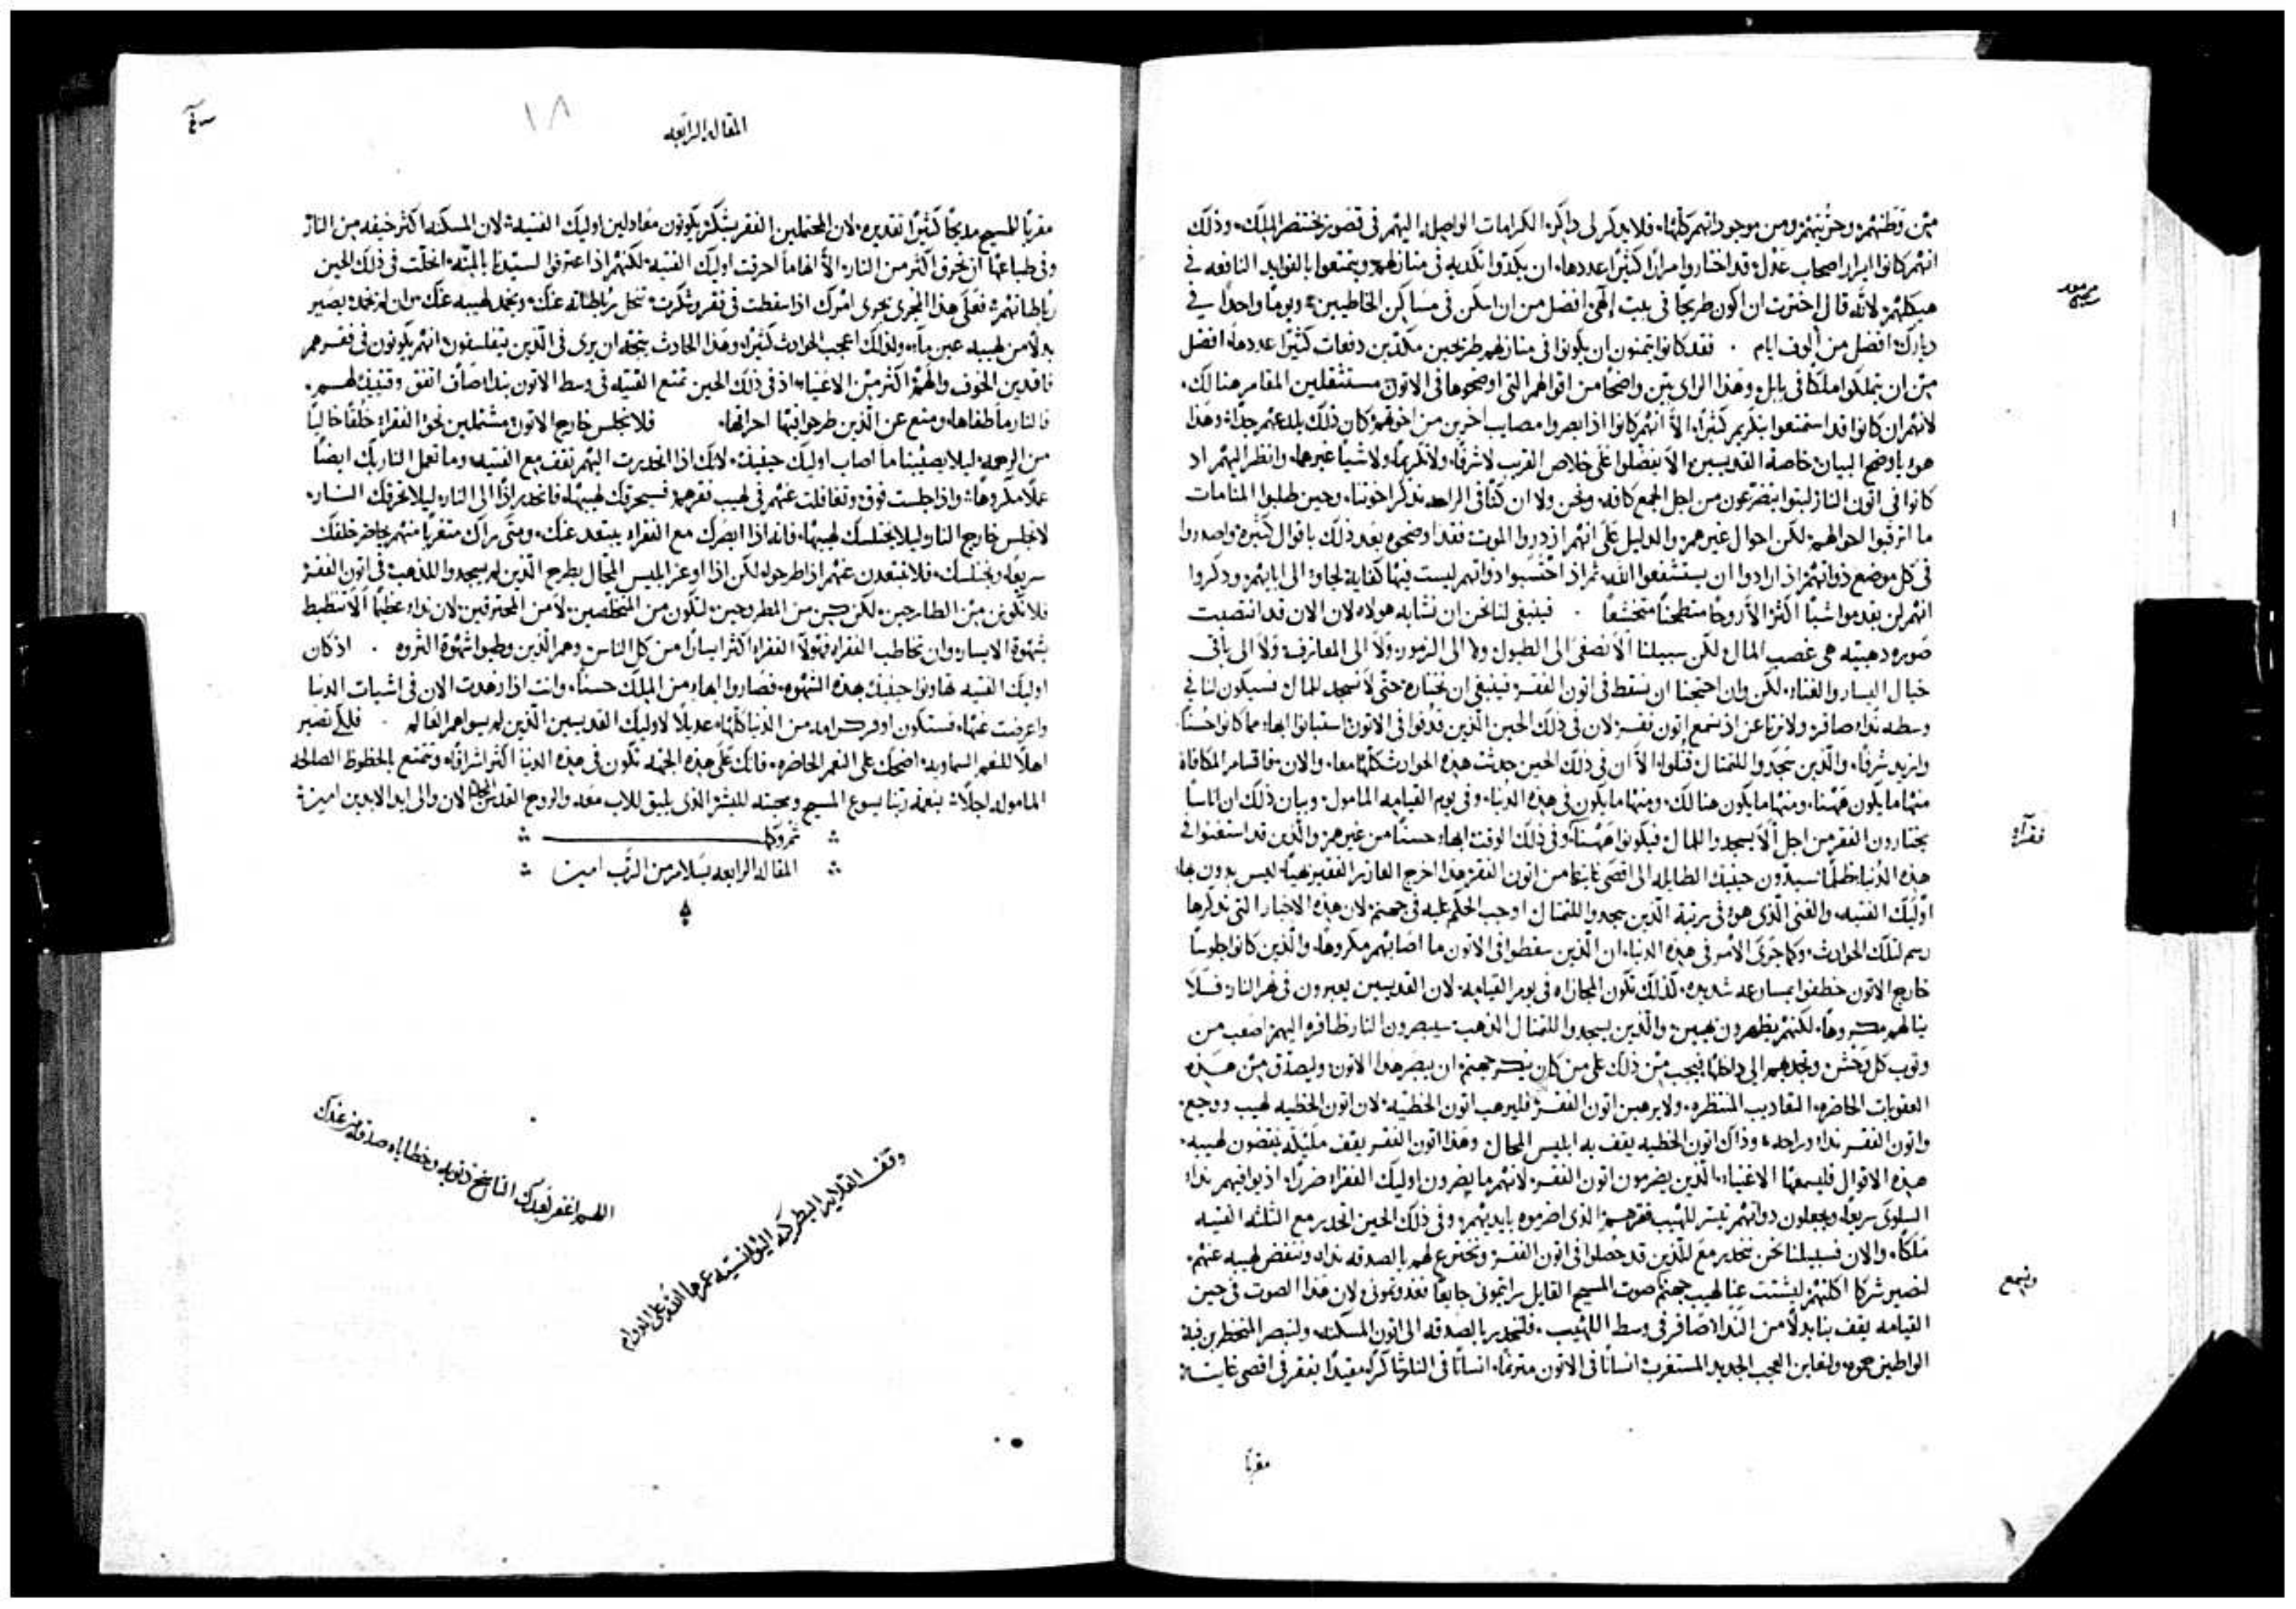 ممن قطنهم وحزبهم ومن موجوداتهم كلها، فلا يذكر لي ذاكر الكرامات الواصله اليهم في قصور بختنصر الملك، وذلك
انهم كانوا ابرار اصحاب عدل قد اختاروا مرارًا كثيرًا عددها، ان يكدوا تكديه في منازلهم ويتمتعوا بالفوايد النافعه في
هيكلهم، لانه قال اخترت ان اكون طريحًا في بيت الهي افضل من ان اسكن في مساكن الخاطيين، ويومًا واحدًا في
ديارك افضل من ألوف ايام . فقد كانوا يتمنون ان يكونوا في منازلهم طريحين مكدين دفعات كثيرًا عددها، افضل
من ان يتملكوا ملكًا في بابل، وهذا الراي بين واضحًا من اقوالهم التي اوضحوها في الاتون مستثقلين المقام هنالك،
لانهم ان كانوا قد استمتعوا بتكريم كثير، الا انهم كانوا اذا بصروا مصايب اخرين من اخوتهم كان ذلك يلدعهم جدًا، وهذا
هو باوضح البيان خاصة القديسين، الا يفضلوا على خلاص القريب لا شرفًا، ولا تكريمًا ولا شيًا غيرهما، وانظر اليهم اذ
كانوا في اتون النار لبثوا يتضرعون من اجل الجمع كافه، ونحن ولا ان كنا في الراحه نذكر اخوتنا، وحين طلبوا المنامات
ما ارقبوا احوالهم لكن احوال غيرهم، والدليل على انهم ازدروا الموت فقد اوضحوه بعد ذلك باقوال كثيره، واصدروا
في كل موضع ذواتهم اذ ارادوا ان يستشفعوا الله، ثم اذ احتسبوا ذواتهم ليست فيها كفاية لجاوا الى ابايهم، وذكروا
انهم لن يقدموا شيًا اكثر الا روحًا منطحنًا متخشعًا . فينبغي لنا نحن ان نشابه هولاء، لان الان قد انتصبت
صوره دهبيه هي غصب المال، لكن سبيلنا الا نصغي الى الطبول ولا الى الزمور، ولا الى المعازف، ولا الى باقي
خيال اليسار والغناء، لكن وان احتجنا ان نسقط في اتون الفقر، فينبغي ان نختاره حتى لا نسجد للمال، فسيكون لنا في
وسطه نداء صافر، ولا نرتاعن اذ نسمع اتون فقر، لان في ذلك الحين الذين قذفوا في الاتون استبانوا ابهاء مما كانوا حسنًا،
وازيد شرفًا، والذين سجدوا للتمثال قتلوا، الا ان في ذلك الحين حدثت هذه الحوادث كلها معا، والان فاقسام المكافاة
منها ما يكون ههنا، ومنها ما يكون هنالك، ومنها ما يكون في هذه الدنيا، وفي يوم القيامه المامول، وبيان ذلك ان اناسًا
يختارون الفقر من اجل ألا يسجدوا للمال فيكونوا ههنا، وفي ذلك الوقت ابهاء حسنًا من غيرهم، والذين قد استغنوا في
هذه الدنيا ظلمًا سيدون حينيذ الطايله الى اقصى غايتها، من اتون الفقر هذا اخرج العازر الفقير بهيًا، ليس بدون بهاء
اوليك الفتيه، والغني الذي هو في مرتبة الذين سجدوا للتمثال اوجب الحكم عليه في جهنم، لان هذه الاخبار التي نذكرها
رسم لتلك الحوادث، وكما جرى الامر في هذه الدنيا، ان الذين سقطوا في الاتون ما اصابهم مكروها، والذين كانوا جلوسًا
خارج الاتون خطفوا بمسارعه شديده، كذلك تكون المجازاه في يوم القيامه، لان القديسين يعبرون في نهر النار، فلا
ينالهم مكروها، لكنهم يظهرون بهيين، والذين يسجدوا للتمثال الذهب، سيبصرون النار ظافره اليهم اصعب من
وثوب كل وحش، وتجذبهم الى داخلها، فيجب من ذلك على من كان ينكر جهنم، ان يبصر هذا الاتون، وليصدق من هذه
العقوبات الحاضره، التعاذيب المنتظره، ولا يرهبن اتون الفقر، فليرهب اتون الخطيه، لان اتون الخطيه لهيب ووجع،
واتون الفقر نداء وراحه، وذاك اتون الخطيه يقف به ابليس المحال وهذا اتون الفقر يقف مليكه ينفضون لهيبه،
هذه الاقوال فليسمعها الاغنياء، الذين يضرمون اتون الفقر، لانهم ما يضرون اوليك الفقراء ضررًا، اذ يوافيهم نداء
السلوى سريعًا، ويجعلون ذواتهم تيسر للهيب فقرهم الذي اضرموه بايديهم، وفي ذلك الحين انحدر مع الثلثه الفتيه
ملكًا، والان فسبيلنا نحن ننحدر مع الذين قد حصلوا في اتون الفقر، ونخترع لهم بالصدقه نداء، وننفض لهيبه عنهم،
لنصير شركا اكلتهم ليشتت عنا لهيب جهنم صوت المسيح القايل رايتموني جايعًا فغذوتموني، لان هذا الصوت في حين
القيامه يقف بنا بدلًا من الندا الصافر في وسط اللهيب، فلننحدر بالصدقه الى اتون المسكنه، ولنبصر المنحطرين فيه
الواطين جموه، ولنعاين العجب الجديد المستغرب، انسانًا في الاتون مترنمًا، انسانًا في النار شاكرًا، مقيدًا بفقر في اقصى غايته،
فقراء
ونسمع
مقربًا
المقاله الرابعه
١٨
مقربًا للمسيح مديحًا كثيرًا تقديره، لان المحتملين الفقر بشكر يكونون معادلين اوليك الفتيه، لان المسكنه اكثر خيفه من النار
وفي طباعها ان تحرق اكثر من النار، الا انها ما احرقت اوليك الفتيه، لكنهم اذا اعترفوا لسيدنا بالمنه انحلت في ذلك الحين
رباطاتهم، فعلى هذا المجرى يجري امرك اذا سقطت في فقر وشكرت، تنحل رباطاته عنك، ويخمد لهيبه عنك، وان لم يخمد، يصير
بدلًا من لهيبه عين ماء، ولذلك اعجب الحوادث كثيره، وهذا الحادث يتجه ان يرى في الذين يتفلسفون، انهم يكونون في فقرهم
فاقدين الخوف والهم اكثر من الاغنياء، اذ في ذلك الحين تمتع الفتيه في وسط الاتون بنداء صاف اتفق وقتيذ لهم،
فالنار ما طفاها، ومنع عن الذين طرحوا فيها احراقها، فلا نجلس خارج الاتون مشتملين نحو الفقراء خلقًا خاليًا
من الرحمه، ليلا يصيبنا ما اصاب اوليك حينيذ، لانك اذا انحدرت اليهم تقف مع الفتيه، وما تعمل النار بك ايضًا
عملًا مكروهًا، واذا جلست فوق وتغافلت عنهم في لهيب فقرهم، فسيحرقك لهيبها، فانحدر اذًا الى النار، ليلا تحرقك النار،
لا تجلس خارج النار، ليلا يختلسك لهيبها، فانه اذا ابصرك مع الفقراء يبتعد عنك، ومتى يراك متغربًا منهم يحاضر خلفك
سريعًا ويختلسك، فلا تبتعدن عنهم اذا طرحوا، لكن اذا اوعز ابليس المحال بطرح الذين لم يسجدوا للذهب في اتون الفقر
فلا تكونن من الطارحين، لكن كن من المطروحين، لتكون من المتخلصين، لا من المحترقين، لان نداء عظيمًا الا تنضبط
بشهوة الايسار، وان تخاطب الفقراء، فهولا الفقراء اكثر ايسارًا من كل الناس، وهم الذين وطيوا شهوة الثروه . اذ كان
اوليك الفتيه تهاونوا حينيذ بهذه الشهوه، فصاروا ابهاء من الملك حسنًا، وانت اذا زهدت الان في اشيات الدنيا
واعرضت عنها، فستكون اوفر كرامه من الدنيا كلها، عديلًا لاوليك القديسين الذين لم يسواهم العالم . فلكي تصير
اهلًا للنعم السماويه، اضحك على النعم الحاضره، فانك على هذه الجهه تكون في هذه الدنيا اكثر اشراقًا، وتتمتع بالحظوظ الصالحه
المامولة اجلًا، بنعمة ربنا يسوع المسيح ومحبته للبشر الذي يليق للاب معه والروح القدس المجد الان والى ابد الابدين امين
تم وكمل
المقاله الرابعه بسلام من الرب امين
اللهم اغفر لعبدك الناسخ ذنوبه وخطاياه صدقه من عندك
وقف القلايه البطركيه اليونانيه عمرها الله على الدوام